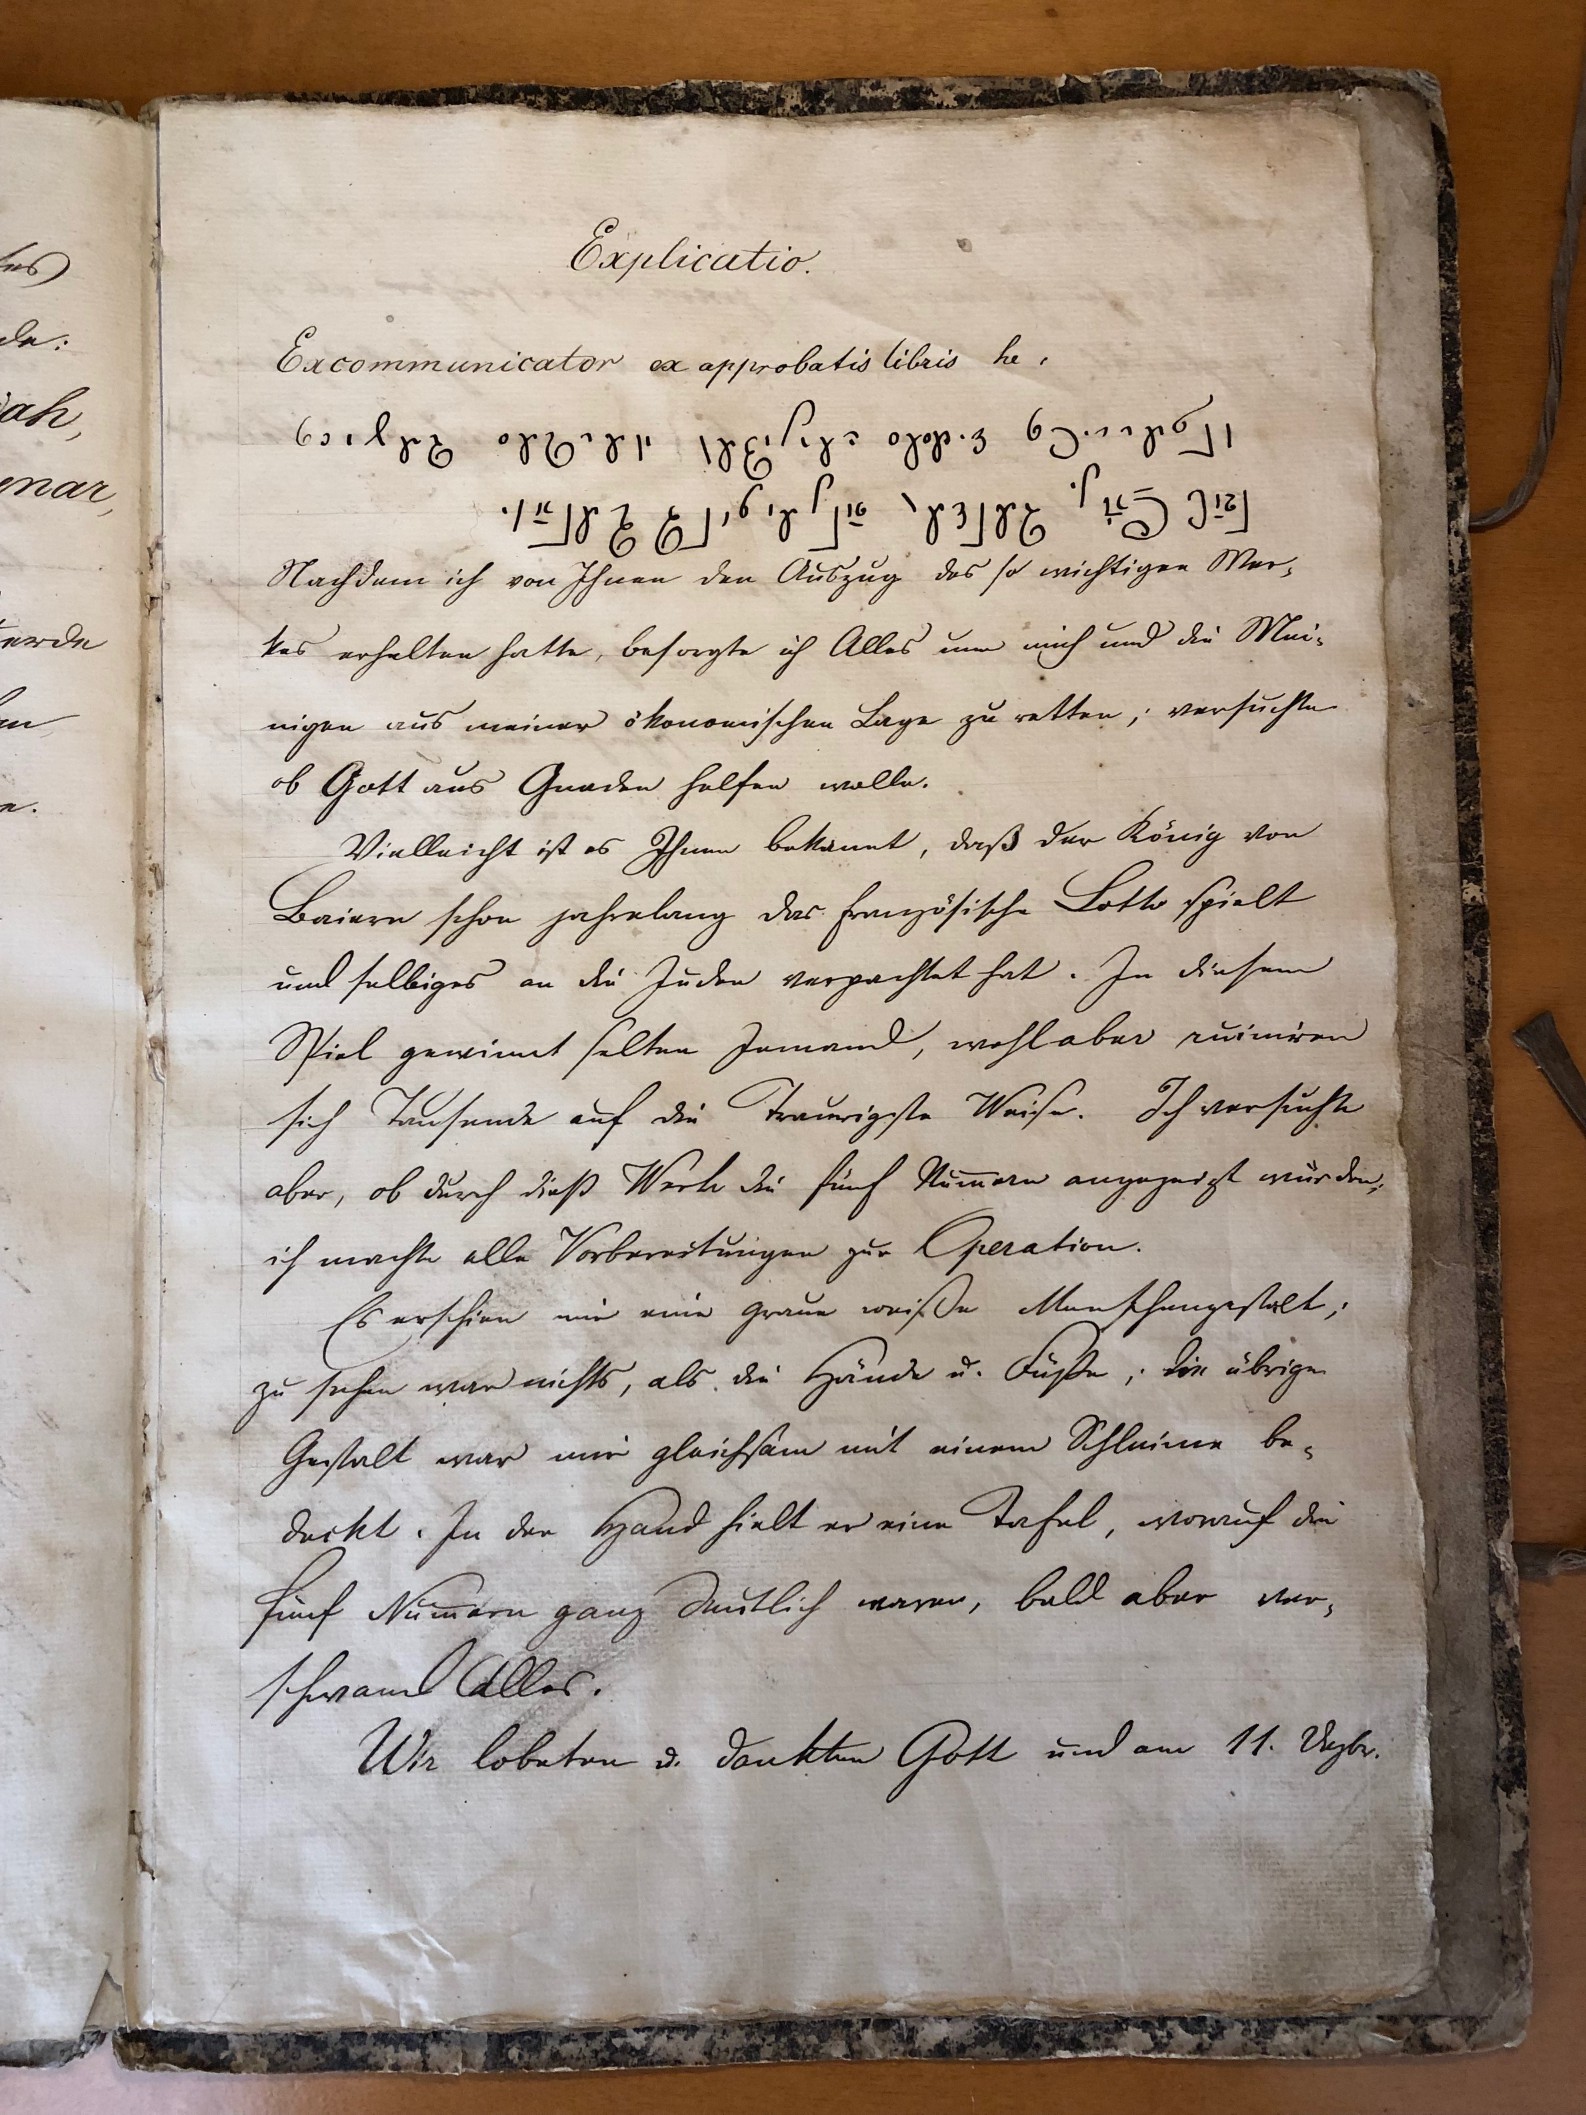 tes
de:
ah,
gnar,
erde
en
e.
Explicatio.
Excommunicator ex approbatis libris he,
Nachdem ich von Ihnen den Auszug des so wichtigen Wer-
kes erhalten hatte, besorgte ich Alles um mich und die Mei-
nigen aus meiner ökonomischen Lage zu retten; versuchte
ob Gott aus Gnaden helfen wolle.
Vielleicht ist es Ihnen bekannt, daß der König von
Baiern schon jahrelang das französische Lotto spielt
und selbiges an die Juden verpachtet hat. In diesem
Spiel gewinnt selten Jemand, wohl aber ruiniren
sich Tausende auf die Traurigste Weise. Ich versuchte
aber, ob durch dieß Werk die fünf Num̅ern angezeigt würden;
ich machte alle Vorbereitungen zur Operation.
Es erschien mir eine graue weiße Menschengestalt;
zu sehen war nichts, als die Hände u. Füße; die übrige
Gestalt war mir gleichsam mit einem Schleime be-
deckt. In der Hand hielt er eine Tafel, worauf die
fünf Num̅ern ganz deutlich waren, bald aber ver-
schwand Alles.
Wir lobeten u. dankten Gott und am 11. Dezbr.